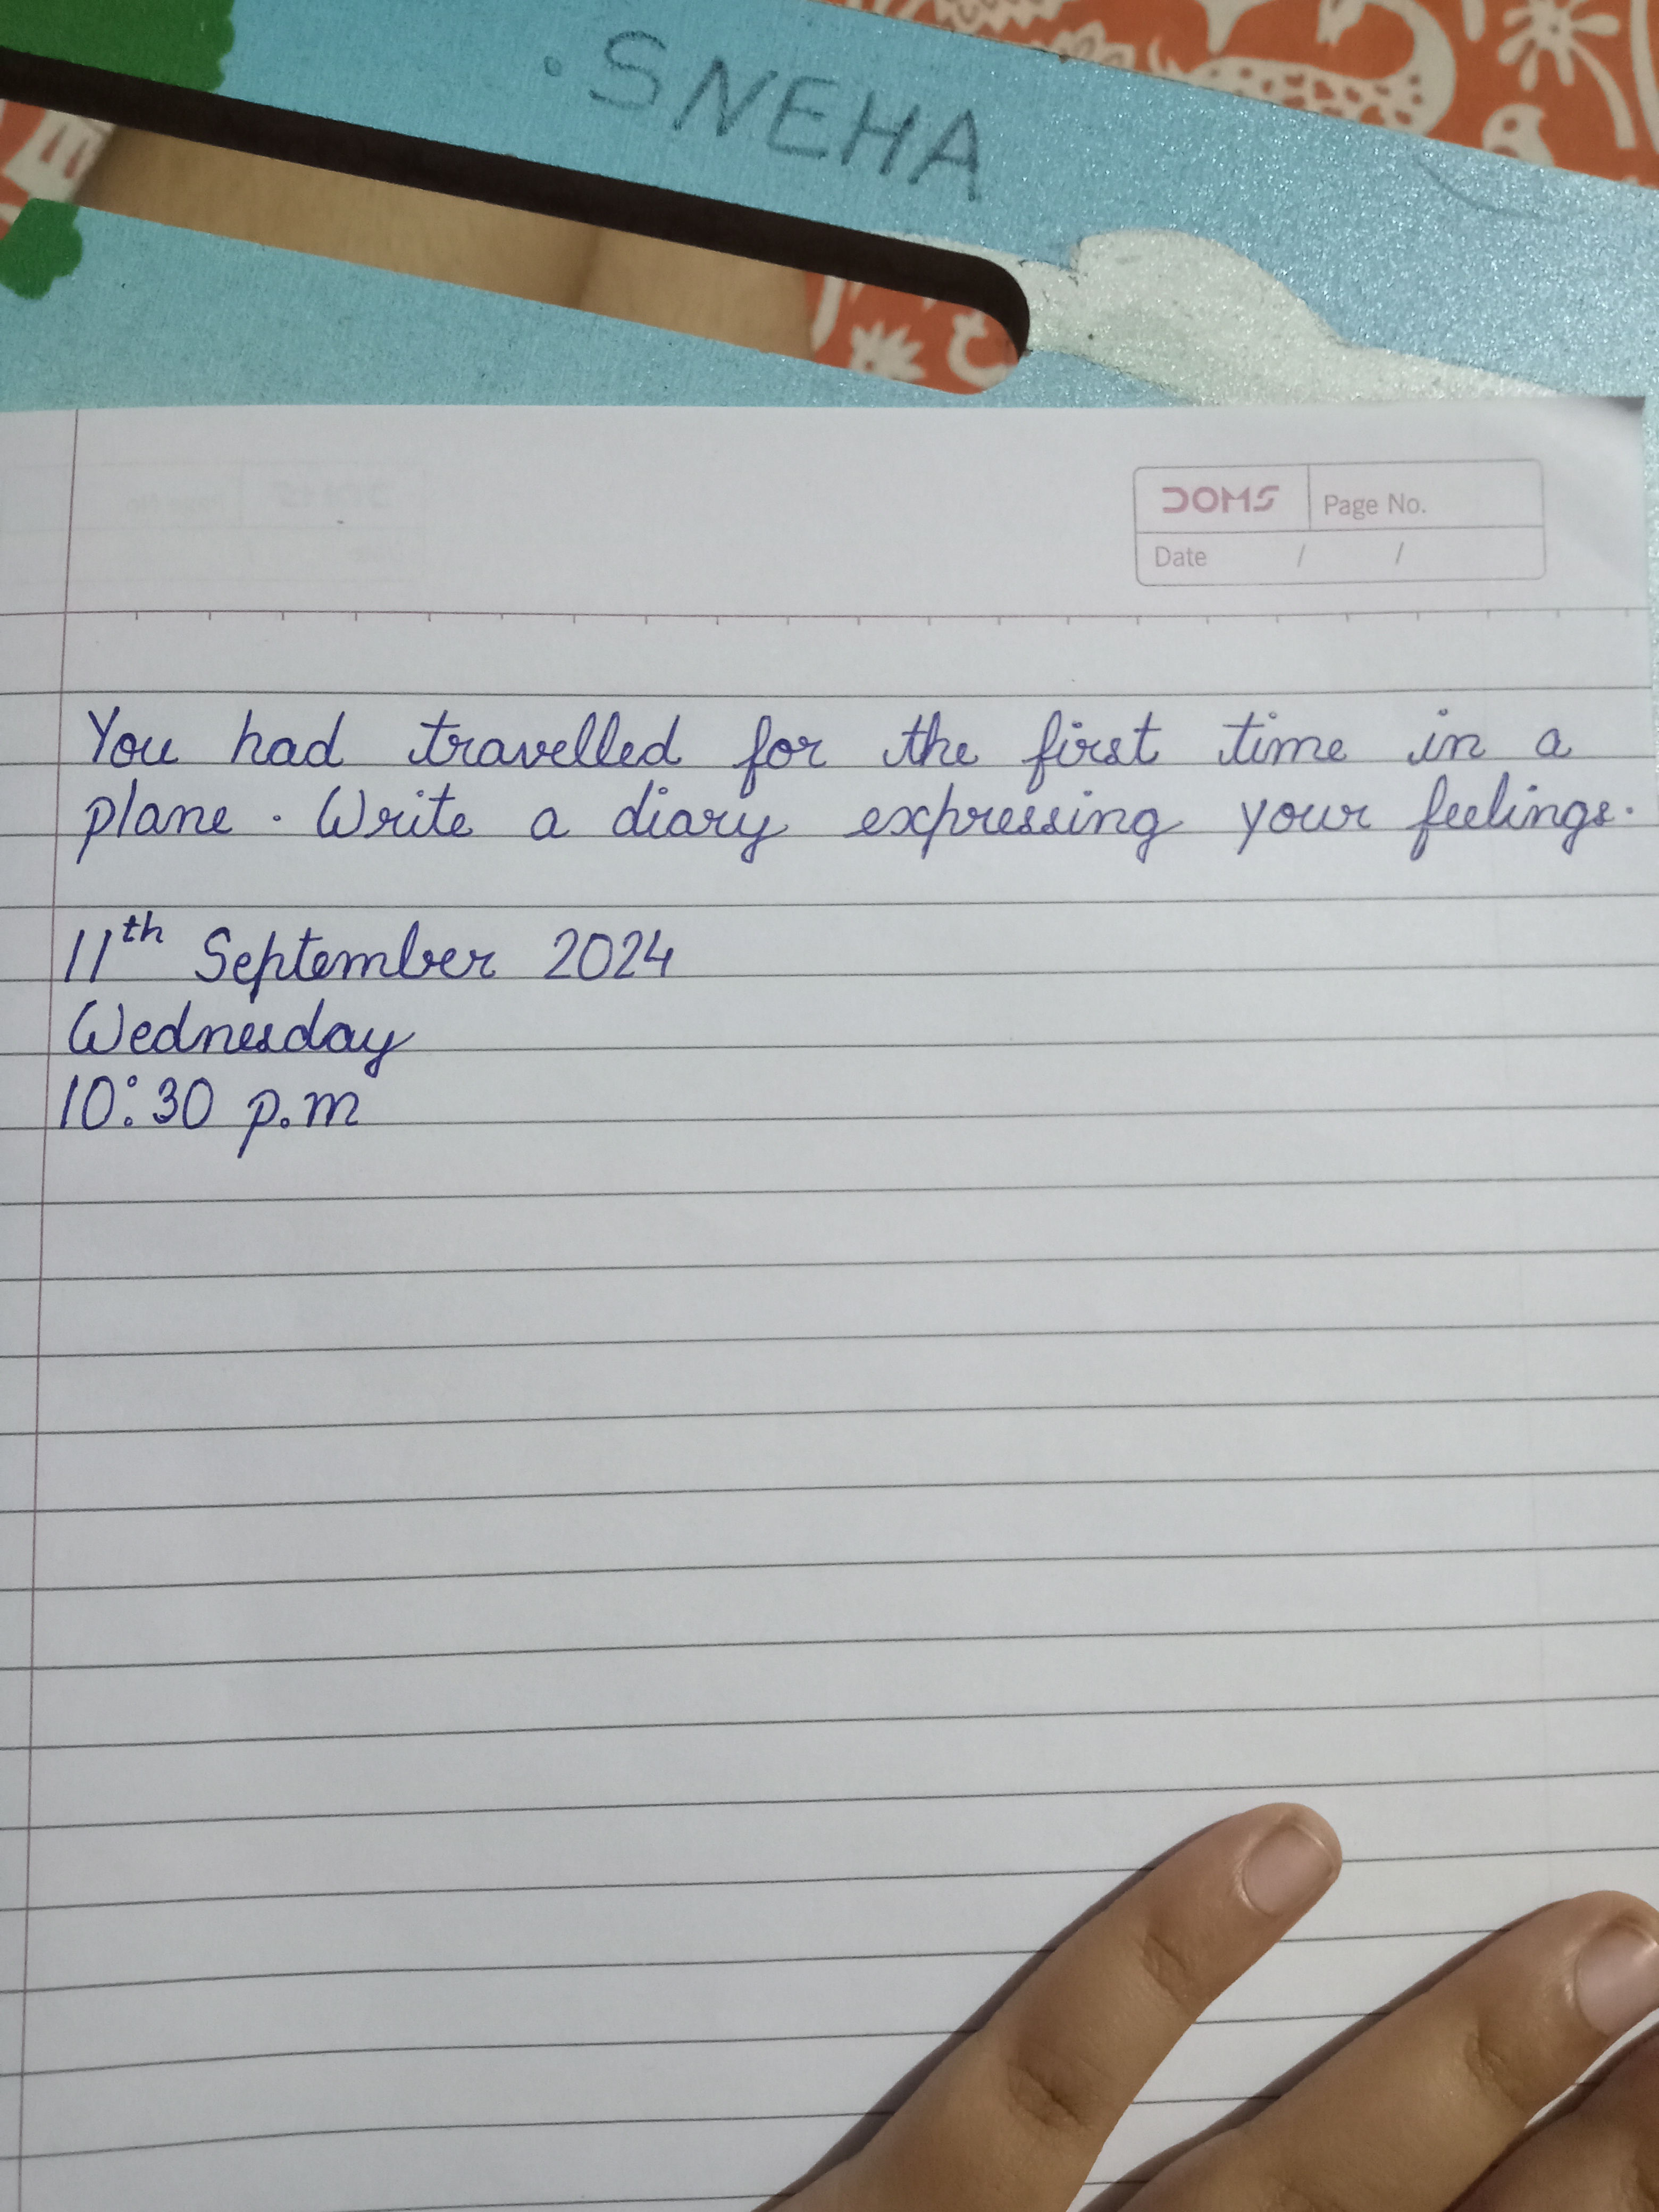 . SNEHA
DOMS Page No.
Date / /
You had travelled for the first time in a
plane. Write a diary expressing your feelings.
11th September 2024
Wednesday
10:30 p.m